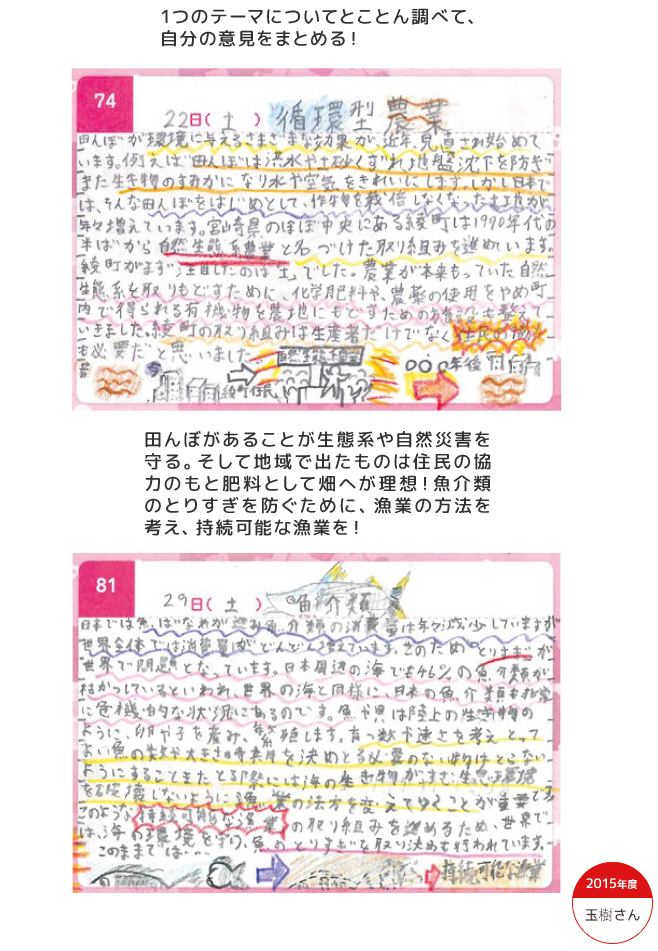 1つのテーマについてとことん調べて、
自分の意見をまとめる！
74
22日（土） 循環型農業
田んぼが環境に与えるさまざまな効果が近年見直され始めて
います。例えば田んぼは洪水や土砂くずれ地盤沈下を防ぎ
また生き物のすみかになり水や空気をきれいにします。しかし日本で
は、そんな田んぼをはじめとして、作物を栽培しなくなった土地が
年々増えています。宮崎県のほぼ中央にある綾町は1970年代の
半ばから自然生態系農業と名づけた取り組みを進めています。
綾町がまず注目したのは土でした。農業が本来もっていた自然
生態系を取りもどすために、化学肥料や、農薬の使用をやめ町
内で得られる有機物を農地にもどすための も整えて
いきました。綾町の取り組みは生産者だけでなく住民の協力
も必要だと思いました
昔
綾町住民
自然生態
〇〇〇年後
田んぼがあることが生態系や自然災害を
守る。そして地域で出たものは住民の協
力のもと肥料として畑へが理想！魚介類
のとりすぎを防ぐために、漁業の方法を
考え、持続可能な漁業を！
81
29日（土） 魚介類
日本では魚ばなれが進み魚介類の消費量は年々減少していますが
世界全体では消費量がどんどん増えています。そのためとりすぎが
世界で問題となっています。日本周辺の海でも46%の魚介類が
枯かっしているといわれ、世界の海と同様に、日本の魚介類も非常
に危機的な状況にあるのです。魚や貝は陸上の生き物の
ように、卵や子を産み、繁殖します。育つ数や速さを考えとって
よい魚の数や大きさ時期を決めとる必要のない物はとらない
ようにすることまたとる際には海の生き物がすむ生息環境
を破壊しないように漁業の方法を変えてゆくことが重要です
このような持続可能な漁業の取り組みを進めるため、世界で
は、海の環境を守り、魚のとりすぎを取り決めも行われています。
このままでは…
持続可能な漁業
2015年度
玉樹さん